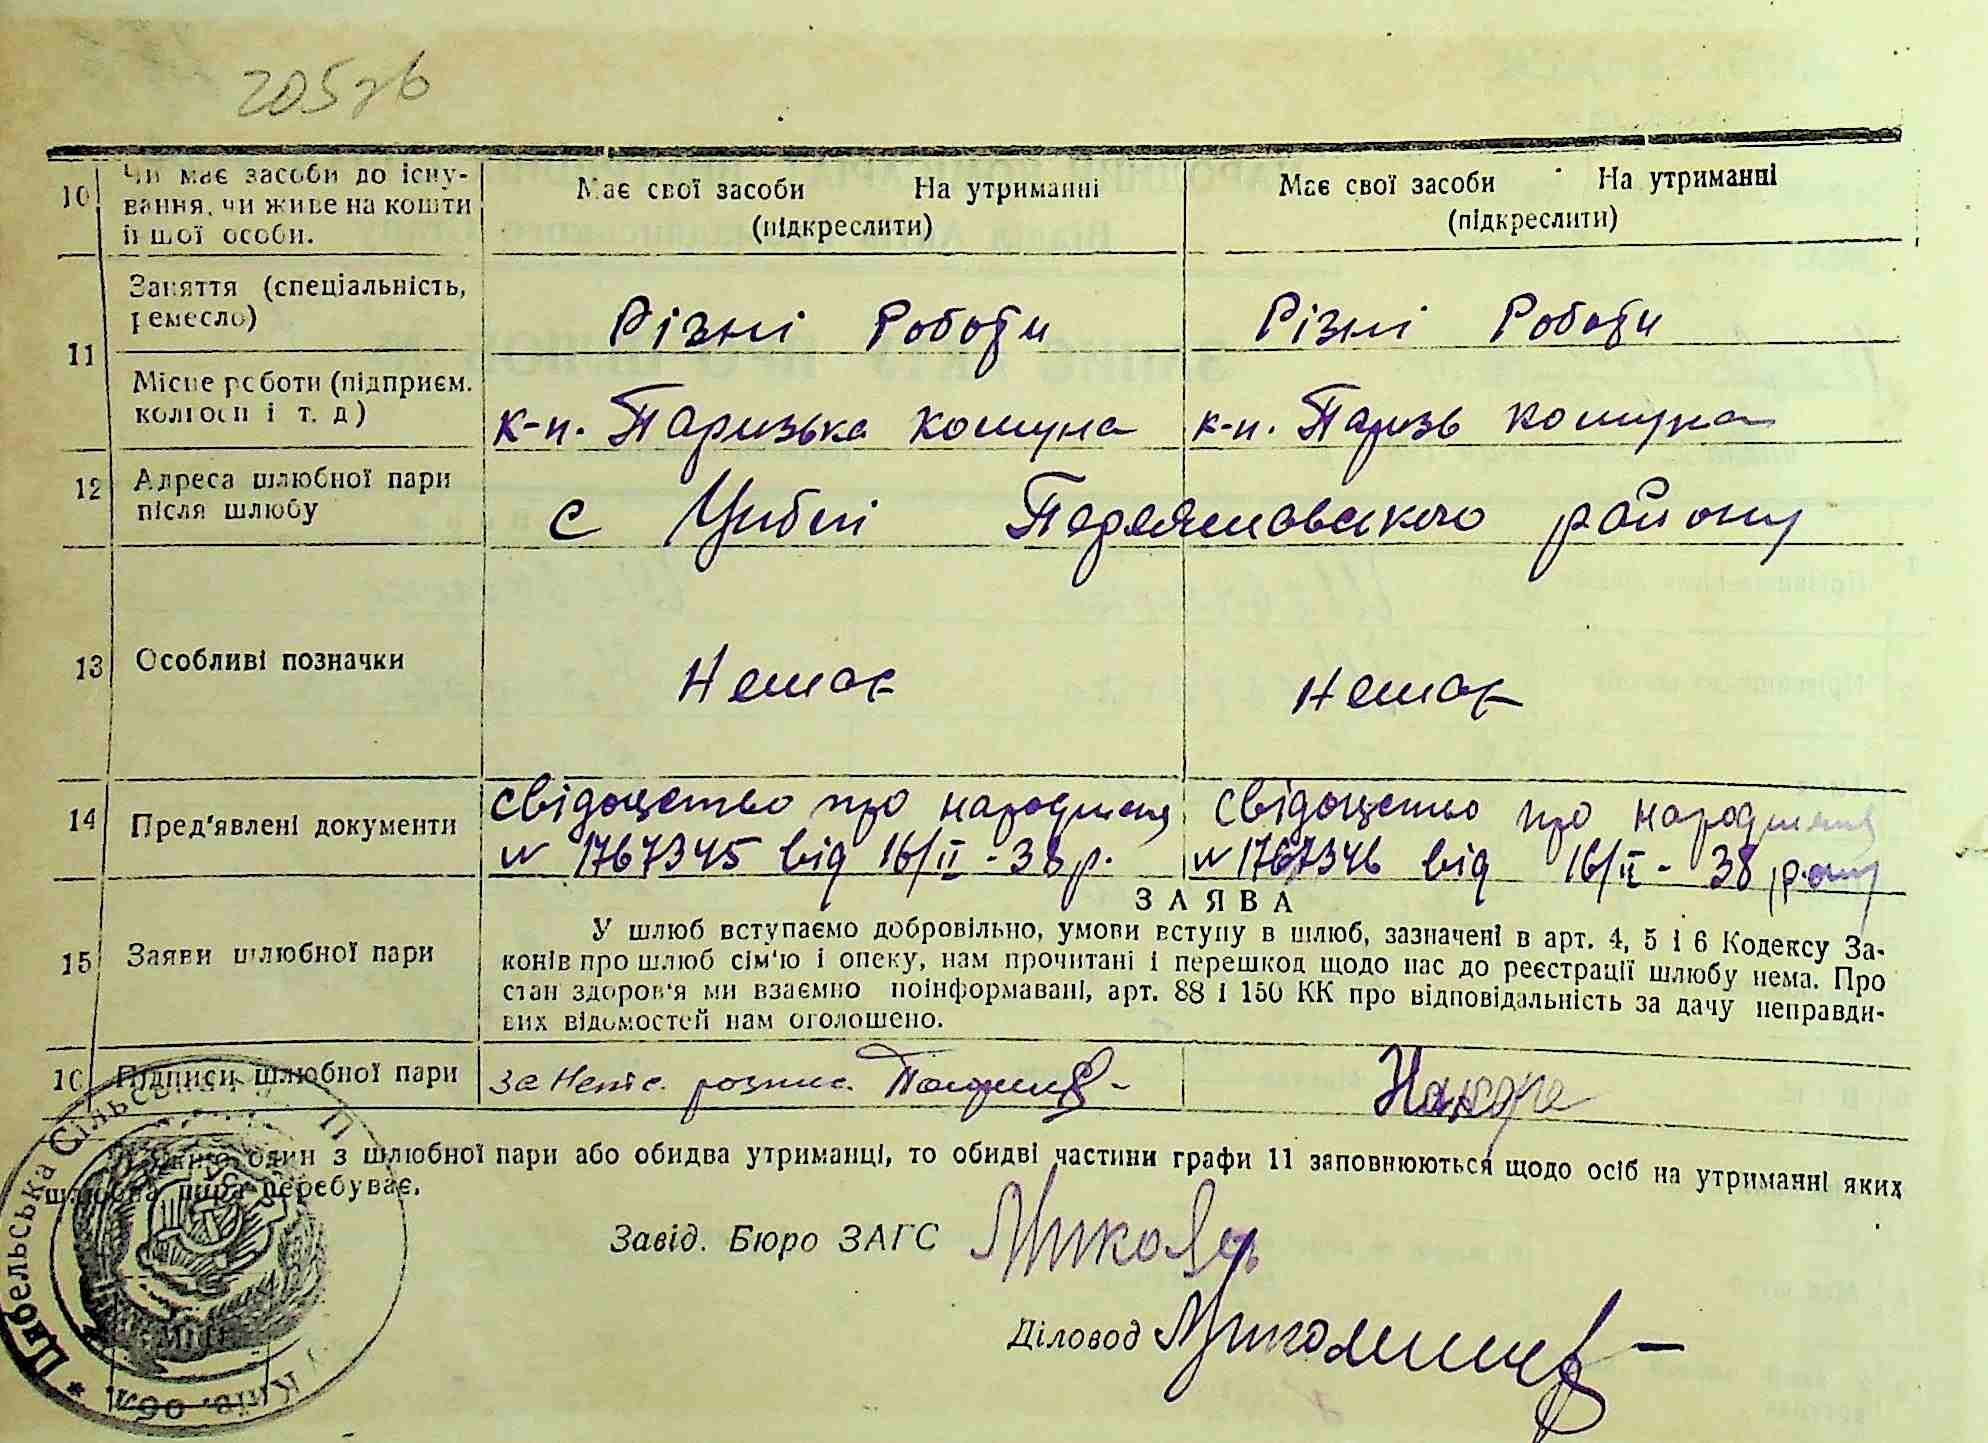 205зв
10 Чи має засоби до існу-
вання, чи живе на кошти
іншої особи.
Має свої засоби На утриманні
(підкреслити)
Має свої засоби На утриманні
(підкреслити)
11 Заняття (спеціальність,
ремесло)
Різні Роботи
Різні Роботи
Місце роботи (підприєм.
колгосп і т. д)
к-п. Паризька комуна
к-п. Паризь комуна
12 Адреса шлюбної пари
після шлюбу
с Циблі Переяславського району
13 Особливі позначки
Немає
Немає
14 Пред'явлені документи
свідоцтво про народження
№ 1767345 від 16/II - 38 р.
свідоцтво про народження
№ 1767346 від 16/II - 38 року
15 Заяви шлюбної пари
ЗАЯВА
У шлюб вступаємо добровільно, умови вступу в шлюб, зазначені в арт. 4, 5 і 6 Кодексу За-
конів про шлюб сім'ю і опеку, нам прочитані і перешкод щодо нас до реєстрації шлюбу нема. Про
стан здоров'я ми взаємно поінформавані, арт. 88 і 150 КК про відповідальність за дачу неправди-
вих відомостей нам оголошено.
16 Підписи шлюбної пари
за Непс. розпис.
один з шлюбної пари або обидва утриманці, то обидві частини графи 11 заповнюються щодо осіб на утриманні яких
шлюбна пара перебуває.
Завід. Бюро ЗАГС
Діловод
* Цибельська Сільська
Київ. обл.